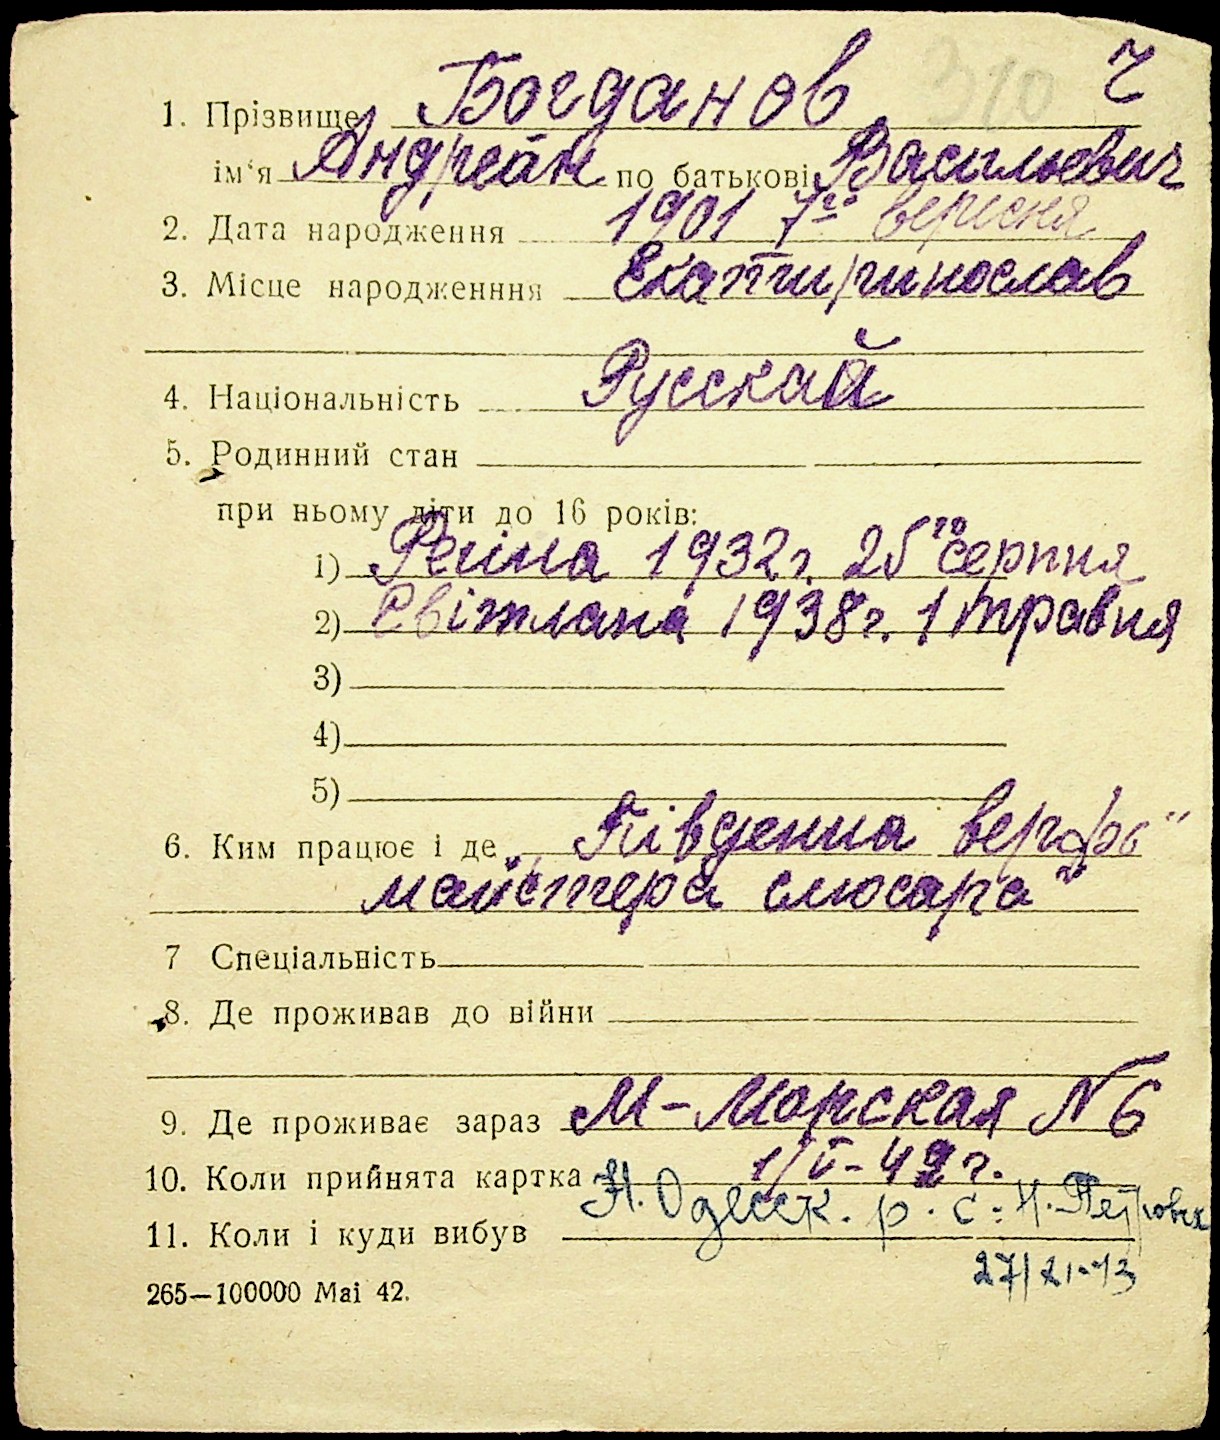 310 Ч
1. Прізвище Богданов
ім'я Андреян по батькові Васильевич
2. Дата народження 1901 7го вересня
3. Місце народженння Екатиринослав
4. Національність Русскай
5. Родинний стан
при ньому діти до 16 років:
1) Реина 1932г. 25го серпня
2) Світлана 1938г. 1 травня
3)
4)
5)
6. Ким працює і де „Південна верфь"
майстера слюсара"
7 Спеціальність
8. Де проживав до війни
9. Де проживає зараз М-Морская № 6
10. Коли прийнята картка 1/V-42г.
11. Коли і куди вибув Н. Одесск. р. с. Н. Петровка
27/ -43
265—100000 Mai 42.